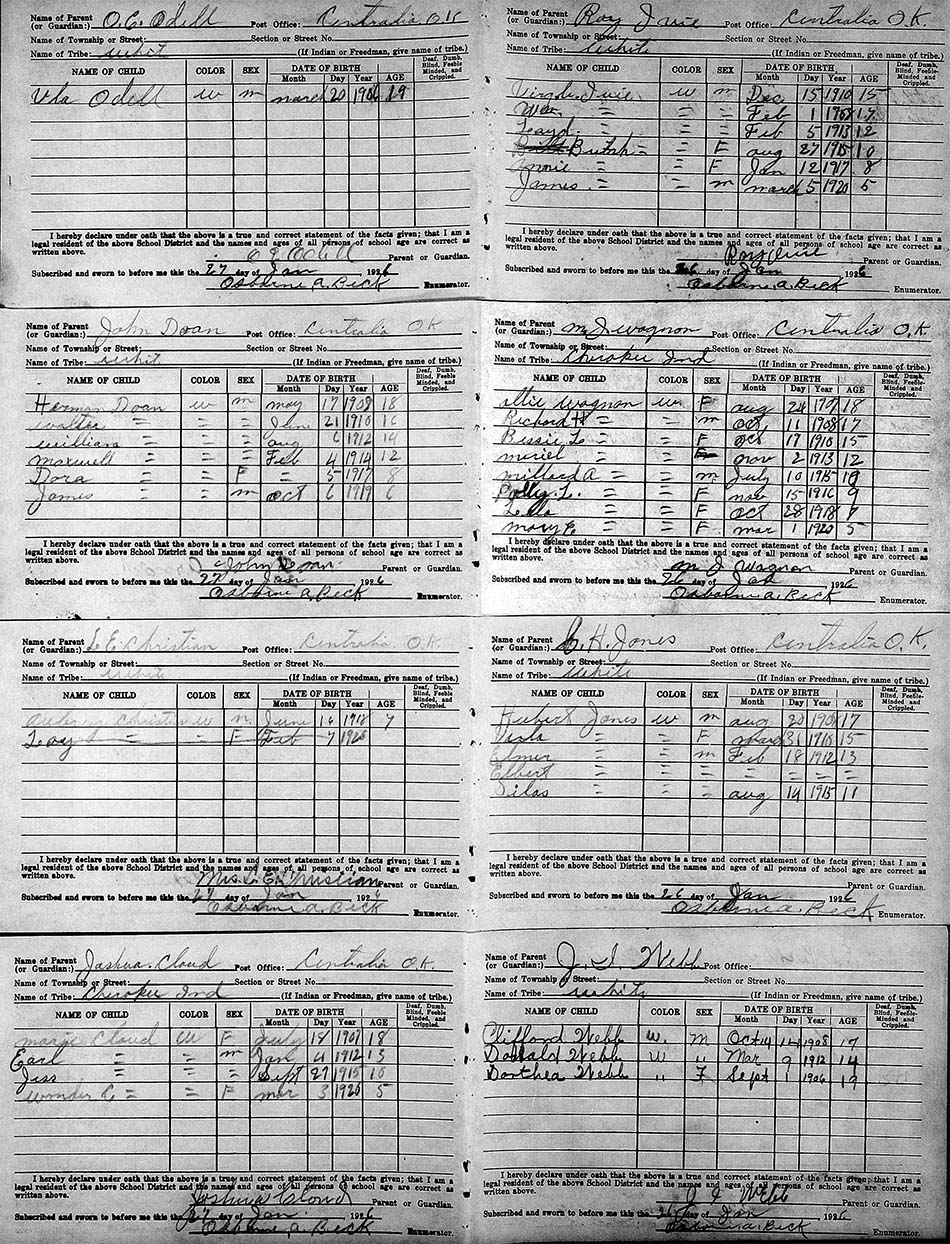 Name of Parent (or Guardian:) O. E. Odell Post Office: Centralia O.K
Name of Township or Street: Section or Street No.
Name of Tribe: whit (If Indian or Freedman, give name of tribe.)
NAME OF CHILD COLOR SEX DATE OF BIRTH Month Day Year AGE Deaf, Dumb, Blind, Feeble Minded, and Crippled.
Odell w m march 20 1906 19
I hereby declare under oath that the above is a true and correct statement of the facts given; that I am a
legal resident of the above School District and the names and ages of all persons of school age are correct as
written above.
O E Odell Parent or Guardian.
Subscribed and sworn to before me this the 27 day of Jan 1926
Osborne A. Beck Enumerator.
Name of Parent (or Guardian:) Roy Post Office: Centralia O.K.
Name of Township or Street: Section or Street No.
Name of Tribe: white (If Indian or Freedman, give name of tribe.)
NAME OF CHILD COLOR SEX DATE OF BIRTH Month Day Year AGE Deaf, Dumb, Blind, Feeble Minded, and Crippled.
w m Dec 15 1910 15
Wm = = = Feb 1 1908 17
= = = Feb 5 1913 12
= F aug 27 1915 10
= = F Jan 12 1917 8
James = = m march 5 1920 5
I hereby declare under oath that the above is a true and correct statement of the facts given; that I am a
legal resident of the above School District and the names and ages of all persons of school age are correct as
written above.
Roy Parent or Guardian.
Subscribed and sworn to before me this the 26 day of Jan 1926
Osborne A. Beck Enumerator.
Name of Parent (or Guardian:) John Doan Post Office: Centralia OK
Name of Township or Street: Section or Street No.
Name of Tribe: whit (If Indian or Freedman, give name of tribe.)
NAME OF CHILD COLOR SEX DATE OF BIRTH Month Day Year AGE Deaf, Dumb, Blind, Feeble Minded, and Crippled.
Herman Doan w m may 17 1908 18
Walter = = = June 21 1910 16
William = = = aug 6 1912 14
maxwell = = = Feb 4 1914 12
Dora = = F = 5 1917 8
James = = m oct 6 1919 6
I hereby declare under oath that the above is a true and correct statement of the facts given; that I am a
legal resident of the above School District and the names and ages of all persons of school age are correct as
written above.
John Doan Parent or Guardian.
Subscribed and sworn to before me this the 27 day of Jan 1926
Osborne A. Beck Enumerator.
Name of Parent (or Guardian:) M J Wagnon Post Office: Centralia O.K.
Name of Township or Street: Section or Street No.
Name of Tribe: Cherokee Ind (If Indian or Freedman, give name of tribe.)
NAME OF CHILD COLOR SEX DATE OF BIRTH Month Day Year AGE Deaf, Dumb, Blind, Feeble Minded, and Crippled.
Wagnon w F aug 24 1907 18
Richard H = = m oct 11 1908 17
Bessie L. = = F oct 17 1910 15
muriel = = nov 2 1913 12
millard A = = m July 10 1915 10
Polly L. = = F nov 15 1916 9
Lella = = F oct 28 1918 7
mary E = = F mar 1 1920 5
I hereby declare under oath that the above is a true and correct statement of the facts given; that I am a
legal resident of the above School District and the names and ages of all persons of school age are correct as
written above.
M J Wagnon Parent or Guardian.
Subscribed and sworn to before me this the 26 day of Jan 1926
Osborne A. Beck Enumerator.
Name of Parent (or Guardian:) L E Christian Post Office: Centralia O.K.
Name of Township or Street: Section or Street No.
Name of Tribe: white (If Indian or Freedman, give name of tribe.)
NAME OF CHILD COLOR SEX DATE OF BIRTH Month Day Year AGE Deaf, Dumb, Blind, Feeble Minded, and Crippled.
Christian w m June 16 1918 7
= = F Feb 7 1920
I hereby declare under oath that the above is a true and correct statement of the facts given; that I am a
legal resident of the above School District and the names and ages of all persons of school age are correct as
written above.
Mrs. L. E. Christian Parent or Guardian.
Subscribed and sworn to before me this the 27 day of Jan 1926
Osborne A. Beck Enumerator.
Name of Parent (or Guardian:) H. Jones Post Office: Centralia O.K.
Name of Township or Street: Section or Street No.
Name of Tribe: white (If Indian or Freedman, give name of tribe.)
NAME OF CHILD COLOR SEX DATE OF BIRTH Month Day Year AGE Deaf, Dumb, Blind, Feeble-Minded, and Crippled.
Hubert Jones w m aug 20 1908 17
= = F march 31 1910 15
Elmer = = m Feb 18 1912 13
Elbert = = = = = = =
Silas = = = aug 14 1915 11
I hereby declare under oath that the above is a true and correct statement of the facts given; that I am a
legal resident of the above School District and the names and ages of all persons of school age are correct as
written above.
Parent or Guardian.
Subscribed and sworn to before me this the 26 day of Jan 1926
Osborne A. Beck Enumerator.
Name of Parent (or Guardian:) Joshua Cloud Post Office: Centralia O.K.
Name of Township or Street: Section or Street No.
Name of Tribe: Cherokee Ind (If Indian or Freedman, give name of tribe.)
NAME OF CHILD COLOR SEX DATE OF BIRTH Month Day Year AGE Deaf, Dumb, Blind, Feeble Minded, and Crippled.
Cloud w F July 18 1907 18
Earl = = m Jan 4 1912 13
Jess = = = Sept 27 1915 10
= = F mar 3 1920 5
I hereby declare under oath that the above is a true and correct statement of the facts given; that I am a
legal resident of the above School District and the names and ages of all persons of school age are correct as
written above.
Joshua Cloud Parent or Guardian.
Subscribed and sworn to before me this the 27 day of Jan. 1926
Osborne A. Beck Enumerator.
Name of Parent (or Guardian:) J. I Webb Post Office:
Name of Township or Street: Section or Street No.
Name of Tribe: white (If Indian or Freedman, give name of tribe.)
NAME OF CHILD COLOR SEX DATE OF BIRTH Month Day Year AGE Deaf, Dumb, Blind, Feeble Minded, and Crippled.
Clifford Webb W. M Oct 14 1908 17
Donald Webb W " Mar 9 1912 14
Dorthea Webb " F Sept 1 1906 19
I hereby declare under oath that the above is a true and correct statement of the facts given; that I am a
legal resident of the above School District and the names and ages of all persons of school age are correct as
written above.
J I Webb Parent or Guardian.
Subscribed and sworn to before me this the 26 day of Jan 1926
Osborne A. Beck Enumerator.